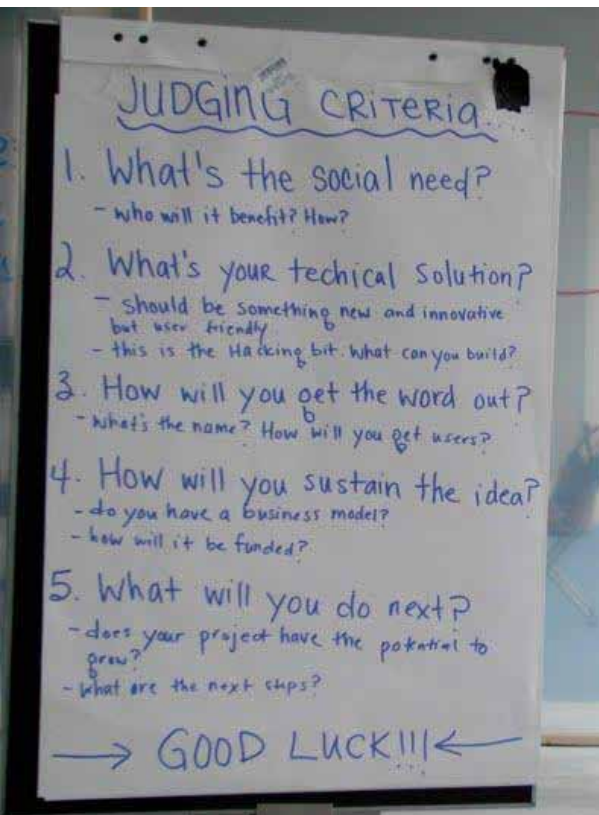 JUDGING CRITERIA
1. What's the social need?
- who will it benefit? How?
2. What's your techical solution?
- should be something new and innovative
but user friendly
- this is the Hacking bit. What can you build?
3. How will you get the word out?
- What's the name? How will you get users?
4. How will you sustain the idea?
- do you have a business model?
- how will it be funded?
5. What will you do next?
- does your project have the potential to
grow?
- What are the next steps?
→ GOOD LUCK!!! ←